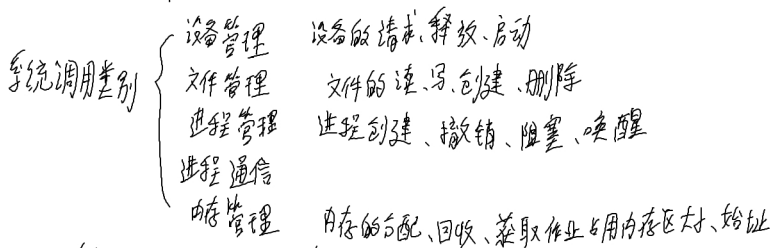 系统调用类别
设备管理 设备的请求、释放、启动
文件管理 文件的读、写、创建、删除
进程管理 进程创建、撤销、阻塞、唤醒
进程通信
内存管理 内存的分配、回收、获取作业占用内存区大小、始址